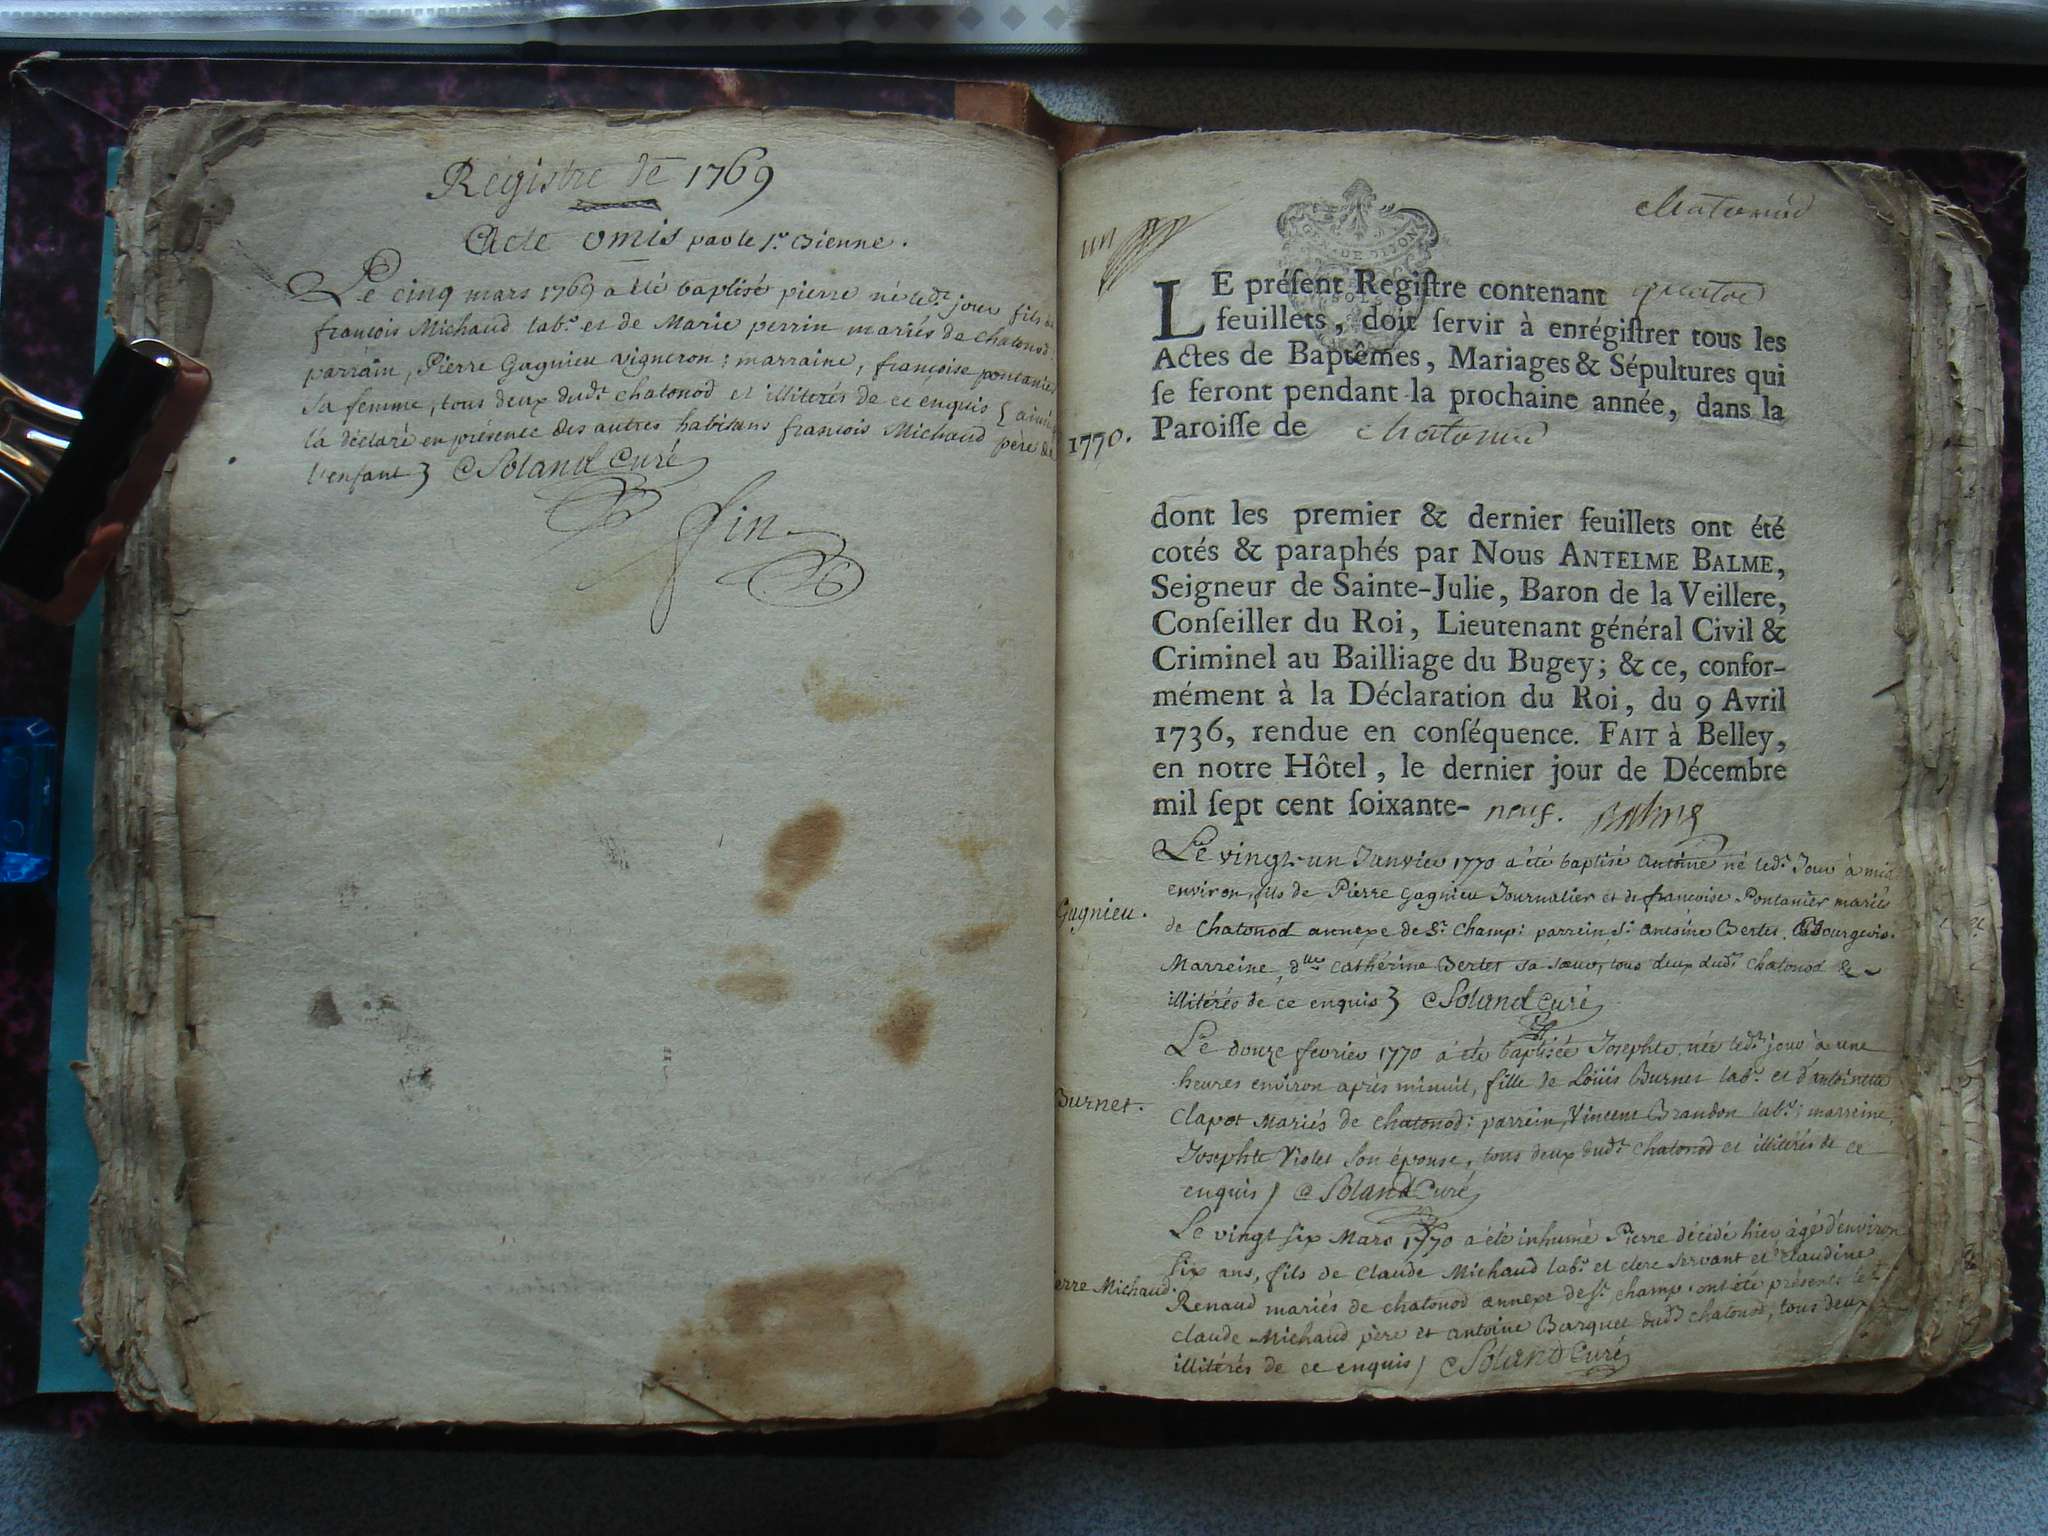 Régistre de 1769
Acte omis par le Sr. Bienne.
Le cinq mars 1769 a été baptisé pierre né ledt. jour fils de
françois Michaud labr. et de Marie perrin mariés de chatonod.
parrain, Pierre Gagnieu vigneron; marraine, françoise pontanier
sa femme, tous deux dudt. chatonod et illiterés de ce enquis
la déclaré en présence des autres habitans françois Michaud père de
l'enfant } Soland Curé
fin
un
Chatonod
LE préſent Regiſtre contenant quatre
feuillets, doit ſervir à enrégiſtrer tous les
Actes de Baptêmes, Mariages & Sépultures qui
ſe feront pendant la prochaine année, dans la
1770. Paroiſſe de Chatonod
dont les premier & dernier feuillets ont été
cotés & paraphés par Nous ANTELME BALME,
Seigneur de Sainte-Julie, Baron de la Veillere,
Conſeiller du Roi, Lieutenant général Civil &
Criminel au Bailliage du Bugey; & ce, confor-
mément à la Déclaration du Roi, du 9 Avril
1736, rendue en conſéquence. FAIT à Belley,
en notre Hôtel, le dernier jour de Décembre
mil ſept cent ſoixante- neuf. Balme
Le vingt-un Janvier 1770 a été baptisé Antoine né ledt. Jour à midi
environ, fils de Pierre Gagnieu Journalier et de françoise Pontanier mariés
Gagnieu. de Chatonod annexe de St. Champ: parrein, Sr. antoine Bertet Bourgeois.
Marreine, dlle Cathérine Bertet sa sœur, tous deux dudt. Chatonod &
illitérés de ce enquis } Soland Curé
Le douze fevrier 1770 a été baptisée Josephte, née ledt. jour à une
heures environ après minuit, fille de Loüis Burnet labr. et d'antoinette
Burnet. Clapot Mariés de chatonod: parrein, Vincent Brandon labr.; marreine,
Josephte Violet son épouse, tous deux dudt. chatonod et illitérés de ce
enquis } Soland Curé
Le vingt six Mars 1770 a été inhumé Pierre décédé hier, âgé d'environ
six ans, fils de Claude Michaud labr. et clerc servant et claudine
erre Michaud. Renaud mariés de chatonod annexe de St. champ. ont été présents led.
claude Michaud père et antoine Burquet dudt. chatonod, tous deux
illitérés de ce enquis } Soland Curé